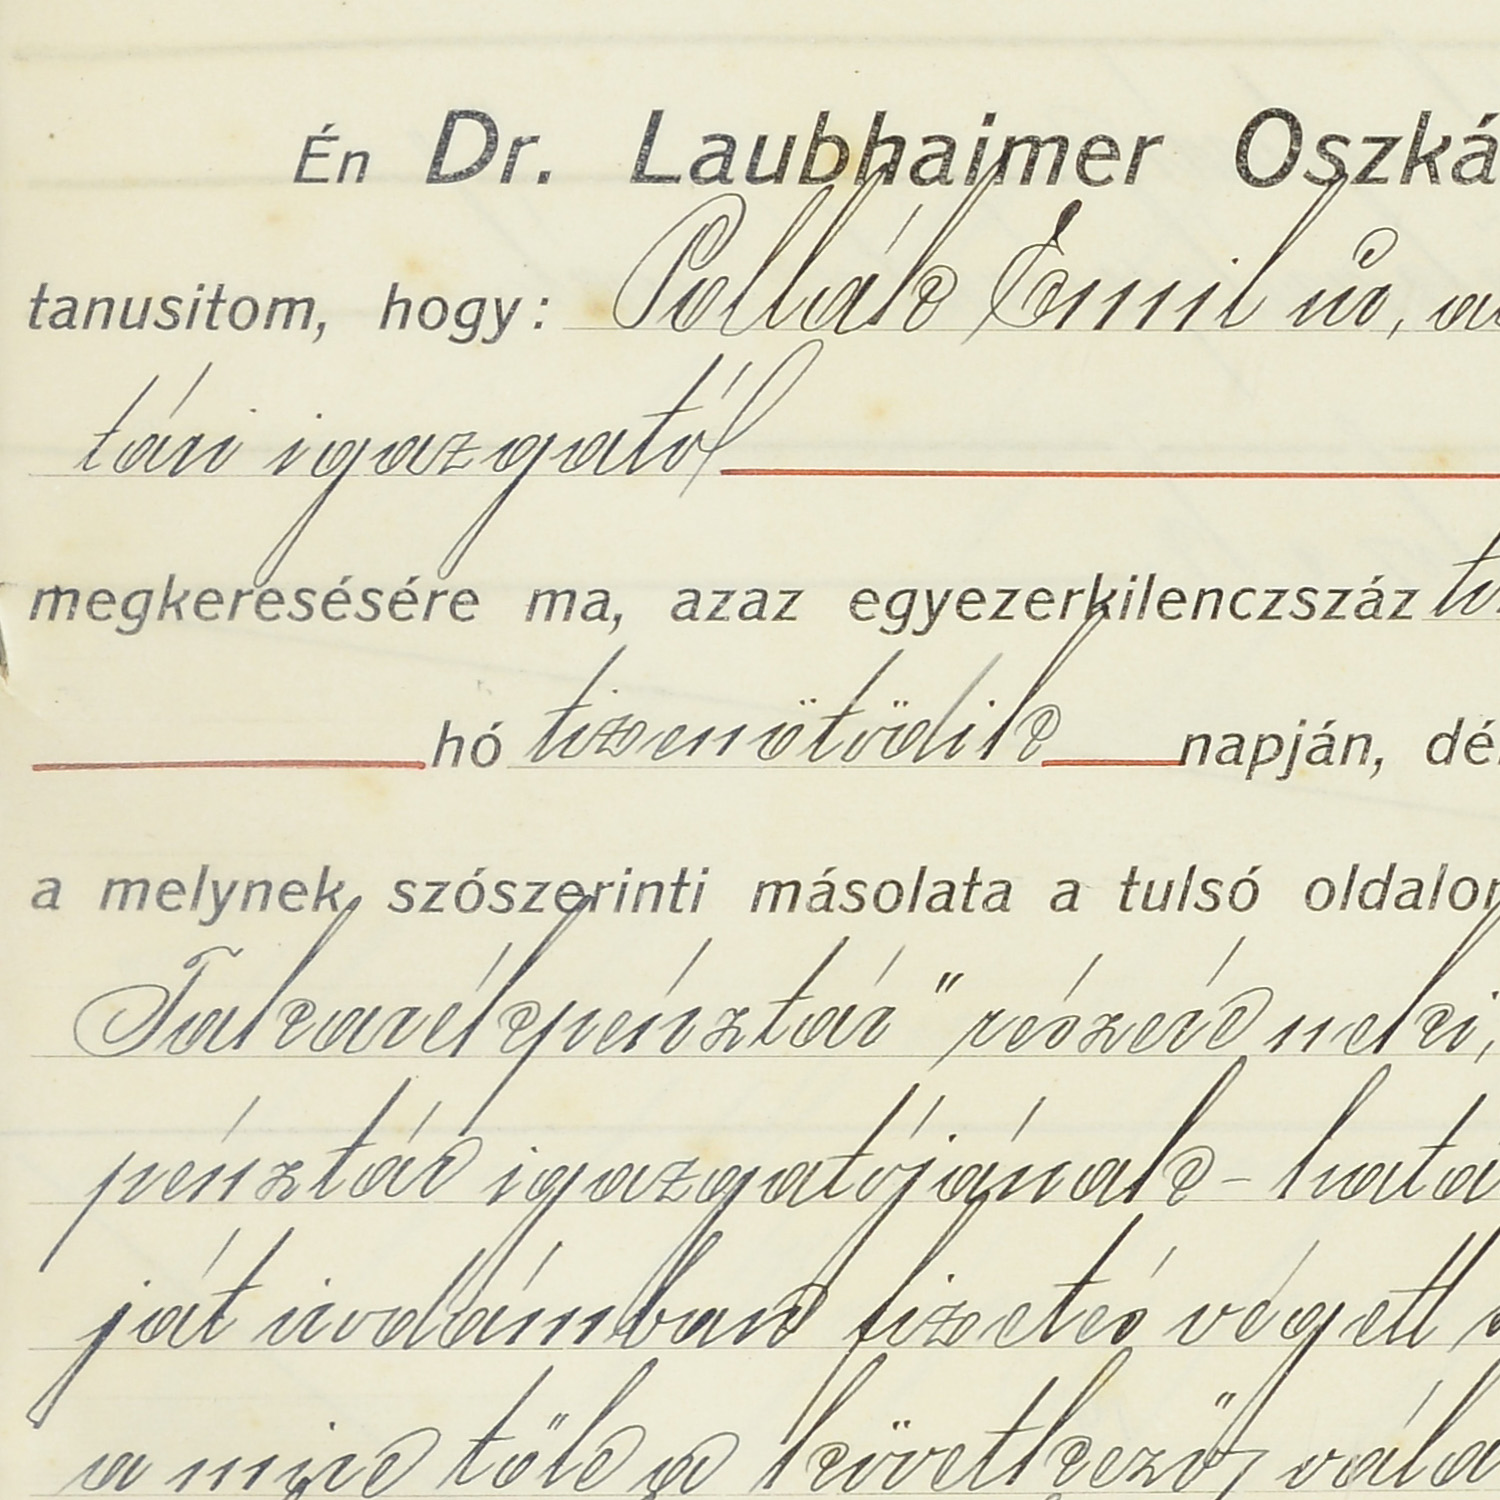 Én Dr. Laubhaimer Oszká
tanusitom, hogy: Pollák Emil úr, a
tári igazgató
megkeresésére ma, azaz egyezerkilenczszáz ti
hó tizenötödik napján, dé
a melynek szószerinti másolata a tulsó oldalon
Takarékpénztár" részére neki,
pénztár igazgatójának - hatá
ját irodámban fizetés végett
a mire tőle a következő vála